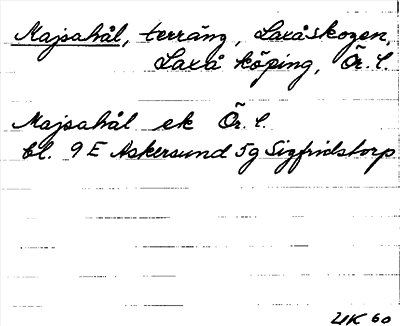 Majsahål, terräng, Laxåskogen,
Laxå köping, Ör. l.
Majsahål ek Ör. l.
bl. 9 E Askersund 5g Sigfridstorp
UK 60